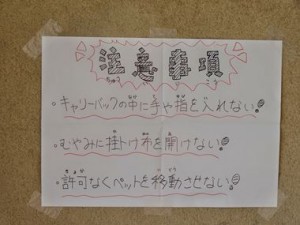 注意事項
・キャリーバックの中に手や指を入れない!
・むやみに掛け布を開けない
・許可なくペットを移動させない!